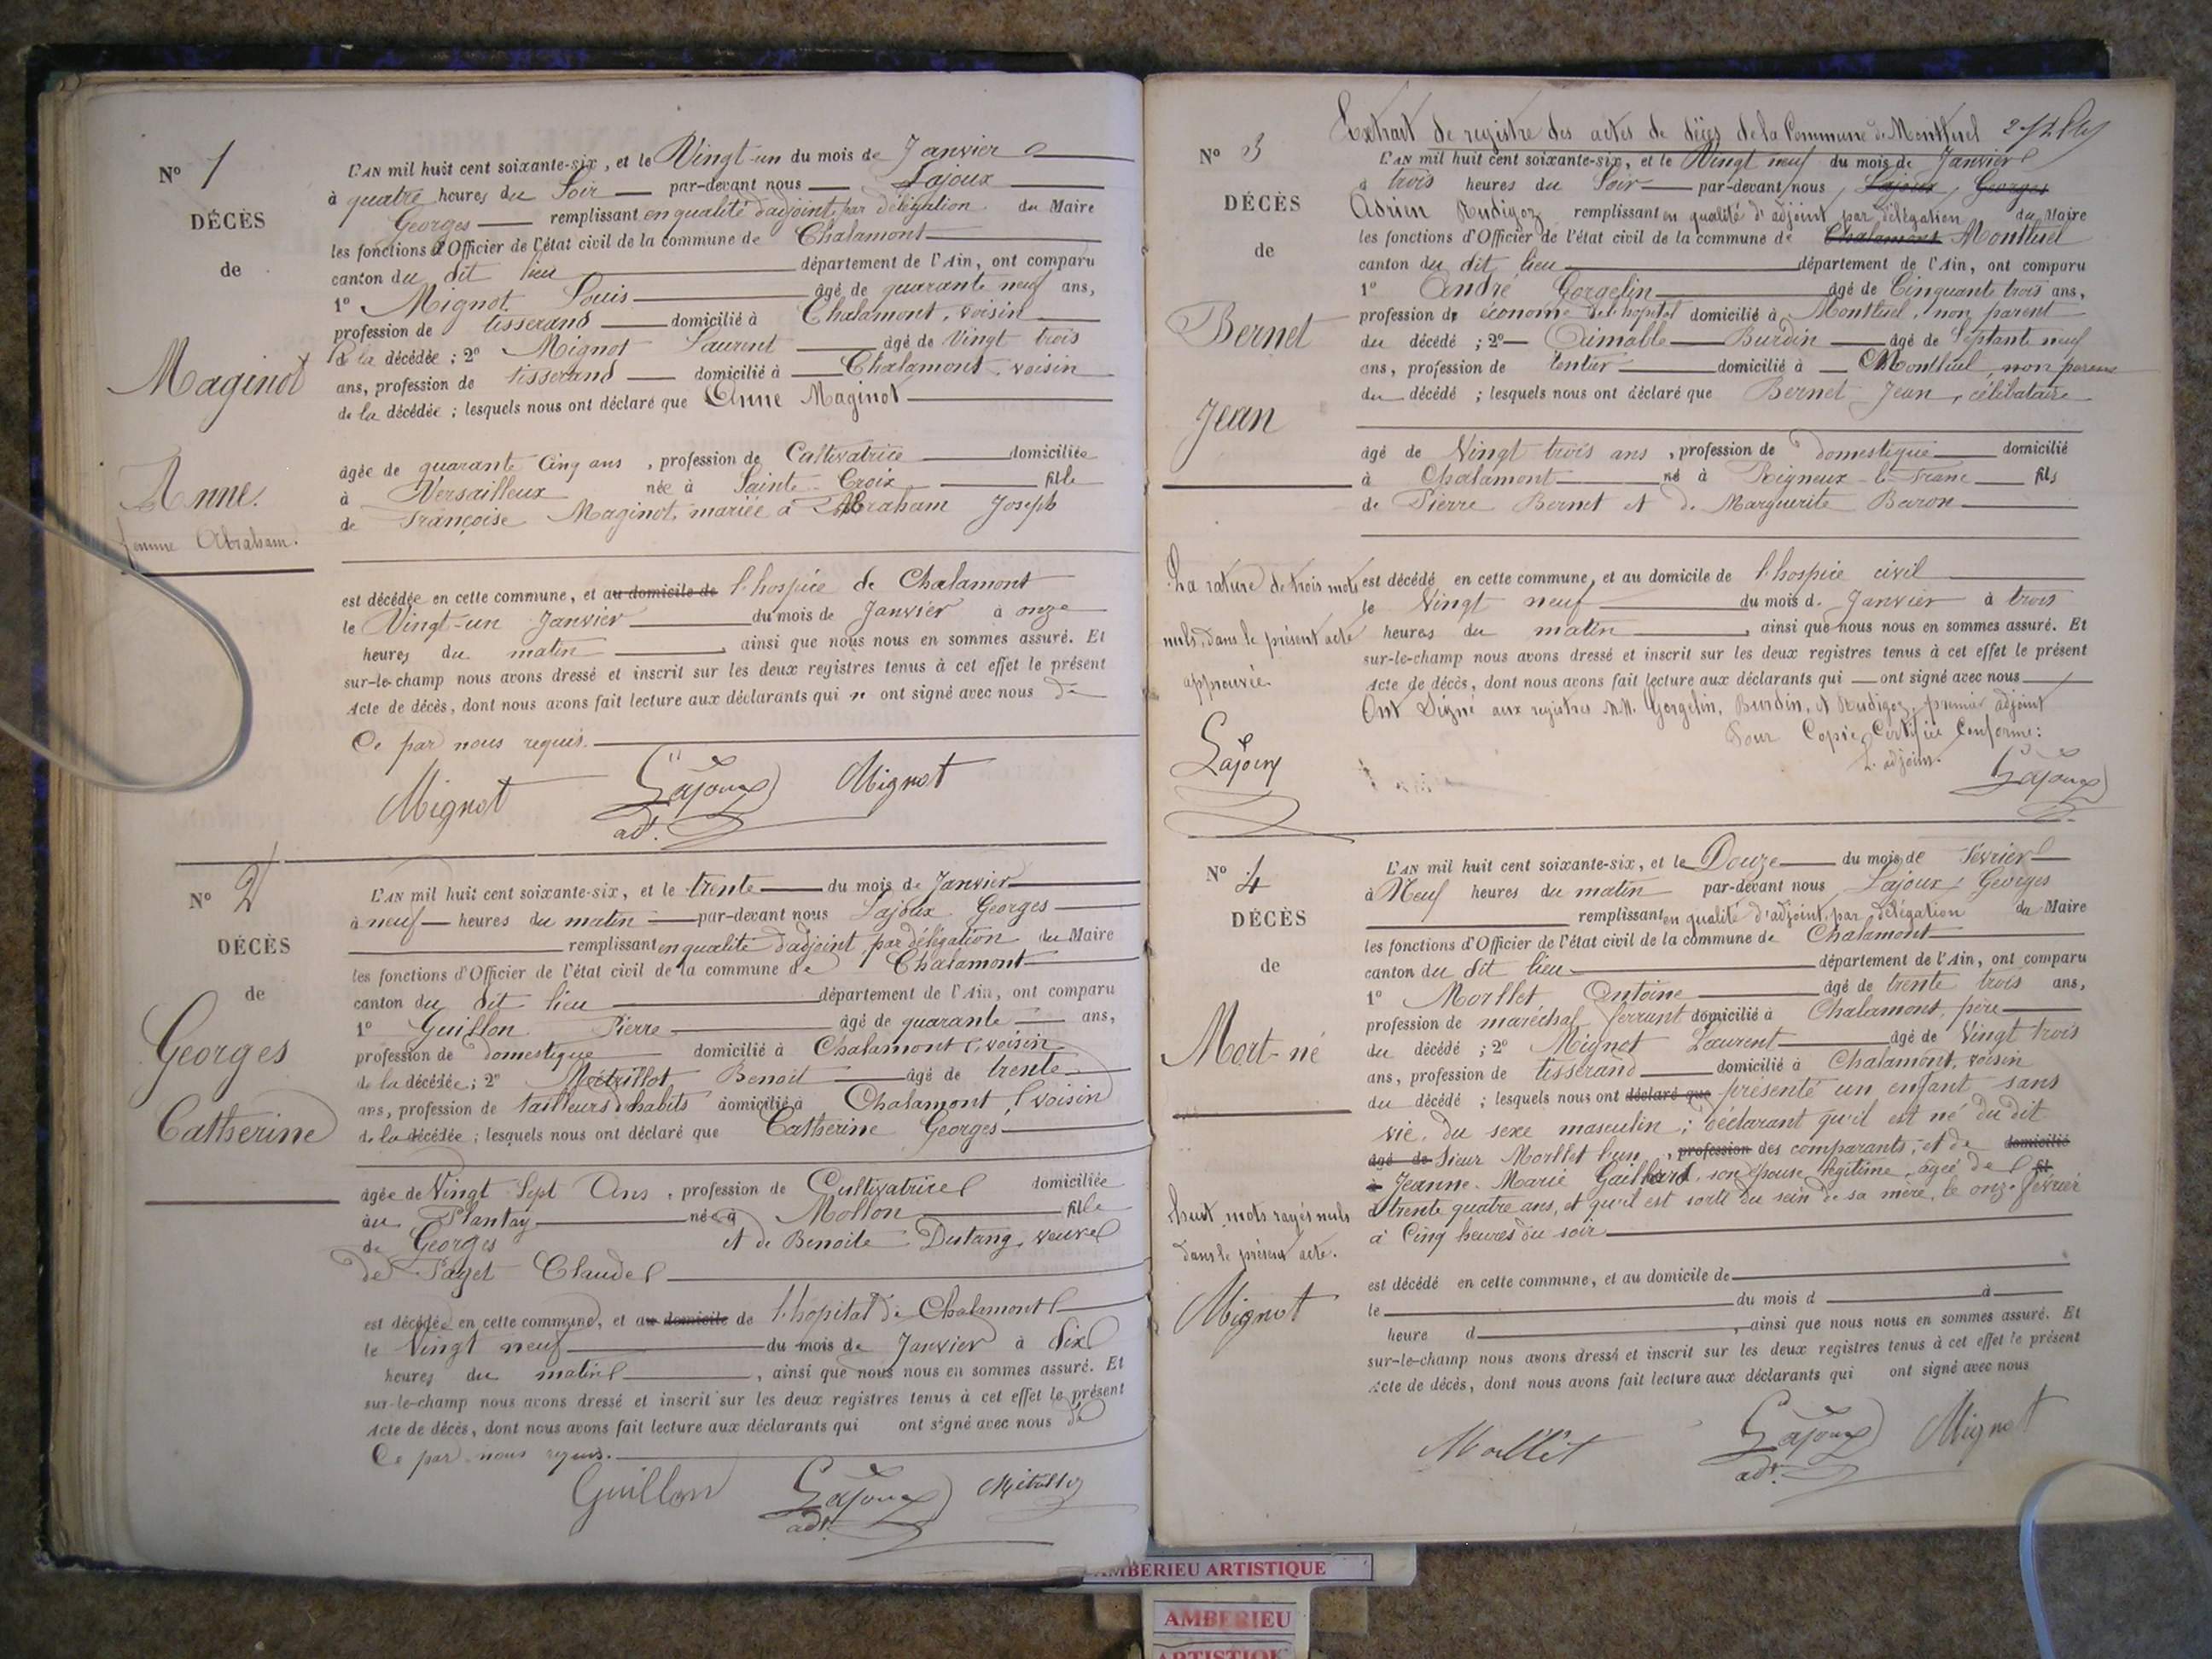 N° 1
DÉCÈS
de
Maginot
Anne.
femme Abraham.
L'AN mil huit cent soixante-six, et le Vingt-un du mois de Janvier
à quatre heures du Soir par-devant nous Lajoux
Georges remplissant en qualité d'adjoint par délégation du Maire
les fonctions d'Officier de l'état civil de la commune de Chalamont
canton du dit lieu département de l'Ain, ont comparu
1° Mignot Louis âgé de quarante neuf ans,
profession de tisserand domicilié à Chalamont, voisin
de la décédée ; 2° Mignot Laurent âgé de Vingt trois
ans, profession de tisserand domicilié à Chalamont, voisin
de la décédée ; lesquels nous ont déclaré que Anne Maginot
âgée de quarante Cinq ans, profession de Cultivatrice domiciliée
à Versailleux née à Sainte-Croix fille
de Françoise Maginot, mariée à Abraham Joseph
est décédée en cette commune, et au domicile de l'hospice de Chalamont
le Vingt-un Janvier du mois de Janvier à onze
heures du matin, ainsi que nous nous en sommes assuré. Et
sur-le-champ nous avons dressé et inscrit sur les deux registres tenus à cet effet le présent
Acte de décès, dont nous avons fait lecture aux déclarants qui ont signé avec nous de
Ce par nous requis.
Mignot Lajoux Mignot
adt.
N° 2
DÉCÈS
de
Georges
Catherine
L'AN mil huit cent soixante-six, et le trente du mois de Janvier
à neuf heures du matin par-devant nous Lajoux Georges
remplissant en qualité d'adjoint par délégation du Maire
les fonctions d'Officier de l'état civil de la commune de Chalamont
canton du dit lieu département de l'Ain, ont comparu
1° Guillon Pierre âgé de quarante ans,
profession de domestique domicilié à Chalamont, voisin
de la décédée ; 2° Métrillot Benoit âgé de trente
ans, profession de tailleurs d'habits domicilié à Chalamont, voisin
de la décédée ; lesquels nous ont déclaré que Catherine Georges
âgée de Vingt Sept Ans, profession de Cultivatrice domiciliée
au Plantay née à Mollon fille
de Georges et de Benoite Dutang, veuve
de Paget Claude
est décédée en cette commune, et au domicile de l'hopital de Chalamont
le Vingt neuf du mois de Janvier à Dix
heures du matin, ainsi que nous nous en sommes assuré. Et
sur-le-champ nous avons dressé et inscrit sur les deux registres tenus à cet effet le présent
Acte de décès, dont nous avons fait lecture aux déclarants qui ont signé avec nous de
Ce par nous requis.
Guillon Lajoux
adt.
Extrait de registre des actes de décès de la Commune de Montluel
N° 3
DÉCÈS
de
Bernet
Jean
La rature de trois mots
nuls, dans le présent acte
approuvée.
Lajoux
L'AN mil huit cent soixante-six, et le Vingt neuf du mois de Janvier
à trois heures du Soir par-devant nous Lajoux, Georges
Adrien Rudigoz remplissant en qualité d'adjoint par délégation du Maire
les fonctions d'Officier de l'état civil de la commune de Chalamont Montluel
canton du dit lieu département de l'Ain, ont comparu
1° André Gorgelin âgé de Cinquante trois ans,
profession de économe de l'hopital domicilié à Montluel, non parent
du décédé ; 2° Aimable Burdin âgé de Septante neuf
ans, profession de rentier domicilié à Montluel, non parent
du décédé ; lesquels nous ont déclaré que Bernet Jean, célibataire
âgé de Vingt trois ans, profession de domestique domicilié
à Chalamont né à Rigneux-le-Franc fils
de Pierre Bernet et de Marguerite Baron
est décédé en cette commune, et au domicile de l'hospice civil
le Vingt neuf du mois d. Janvier à trois
heures du matin, ainsi que nous nous en sommes assuré. Et
sur-le-champ nous avons dressé et inscrit sur les deux registres tenus à cet effet le présent
Acte de décès, dont nous avons fait lecture aux déclarants qui ont signé avec nous
Ont Signé aux registres MM. Gorgelin, Burdin, et Rudigoz, premier adjoint
Pour Copie Certifiée Conforme:
L'adjoint.
Lajoux
N° 4
DÉCÈS
de
Mort-né
huit mots rayés nuls
dans le présent acte.
Mignot
L'AN mil huit cent soixante-six, et le Douze du mois de Février
à Neuf heures du matin par-devant nous Lajoux, Georges
remplissant en qualité d'adjoint, par délégation du Maire
les fonctions d'Officier de l'état civil de la commune de Chalamont
canton du dit lieu département de l'Ain, ont comparu
1° Morllet Antoine âgé de trente trois ans,
profession de maréchal ferrant domicilié à Chalamont, père
du décédé ; 2° Mignot Laurent âgé de Vingt trois
ans, profession de tisserand domicilié à Chalamont, voisin
du décédé ; lesquels nous ont déclaré que présenté un enfant sans
vie, du sexe masculin ; déclarant qu'il est né du dit
âgé de Sieur Morllet l'un, profession des comparants, et de domicilié
à Jeanne-Marie Gaillard, son épouse légitime, agée de fil
trente quatre ans, et qu'il est sorti du sein de sa mère, le onze février
à Cinq heures du soir
est décédé en cette commune, et au domicile de
le du mois d à
heure d, ainsi que nous nous en sommes assuré. Et
sur-le-champ nous avons dressé et inscrit sur les deux registres tenus à cet effet le présent
Acte de décès, dont nous avons fait lecture aux déclarants qui ont signé avec nous
Lajoux Mignot
adt.
AMBERIEU ARTISTIQUE
AMBERIEU
ARTISTIQUE